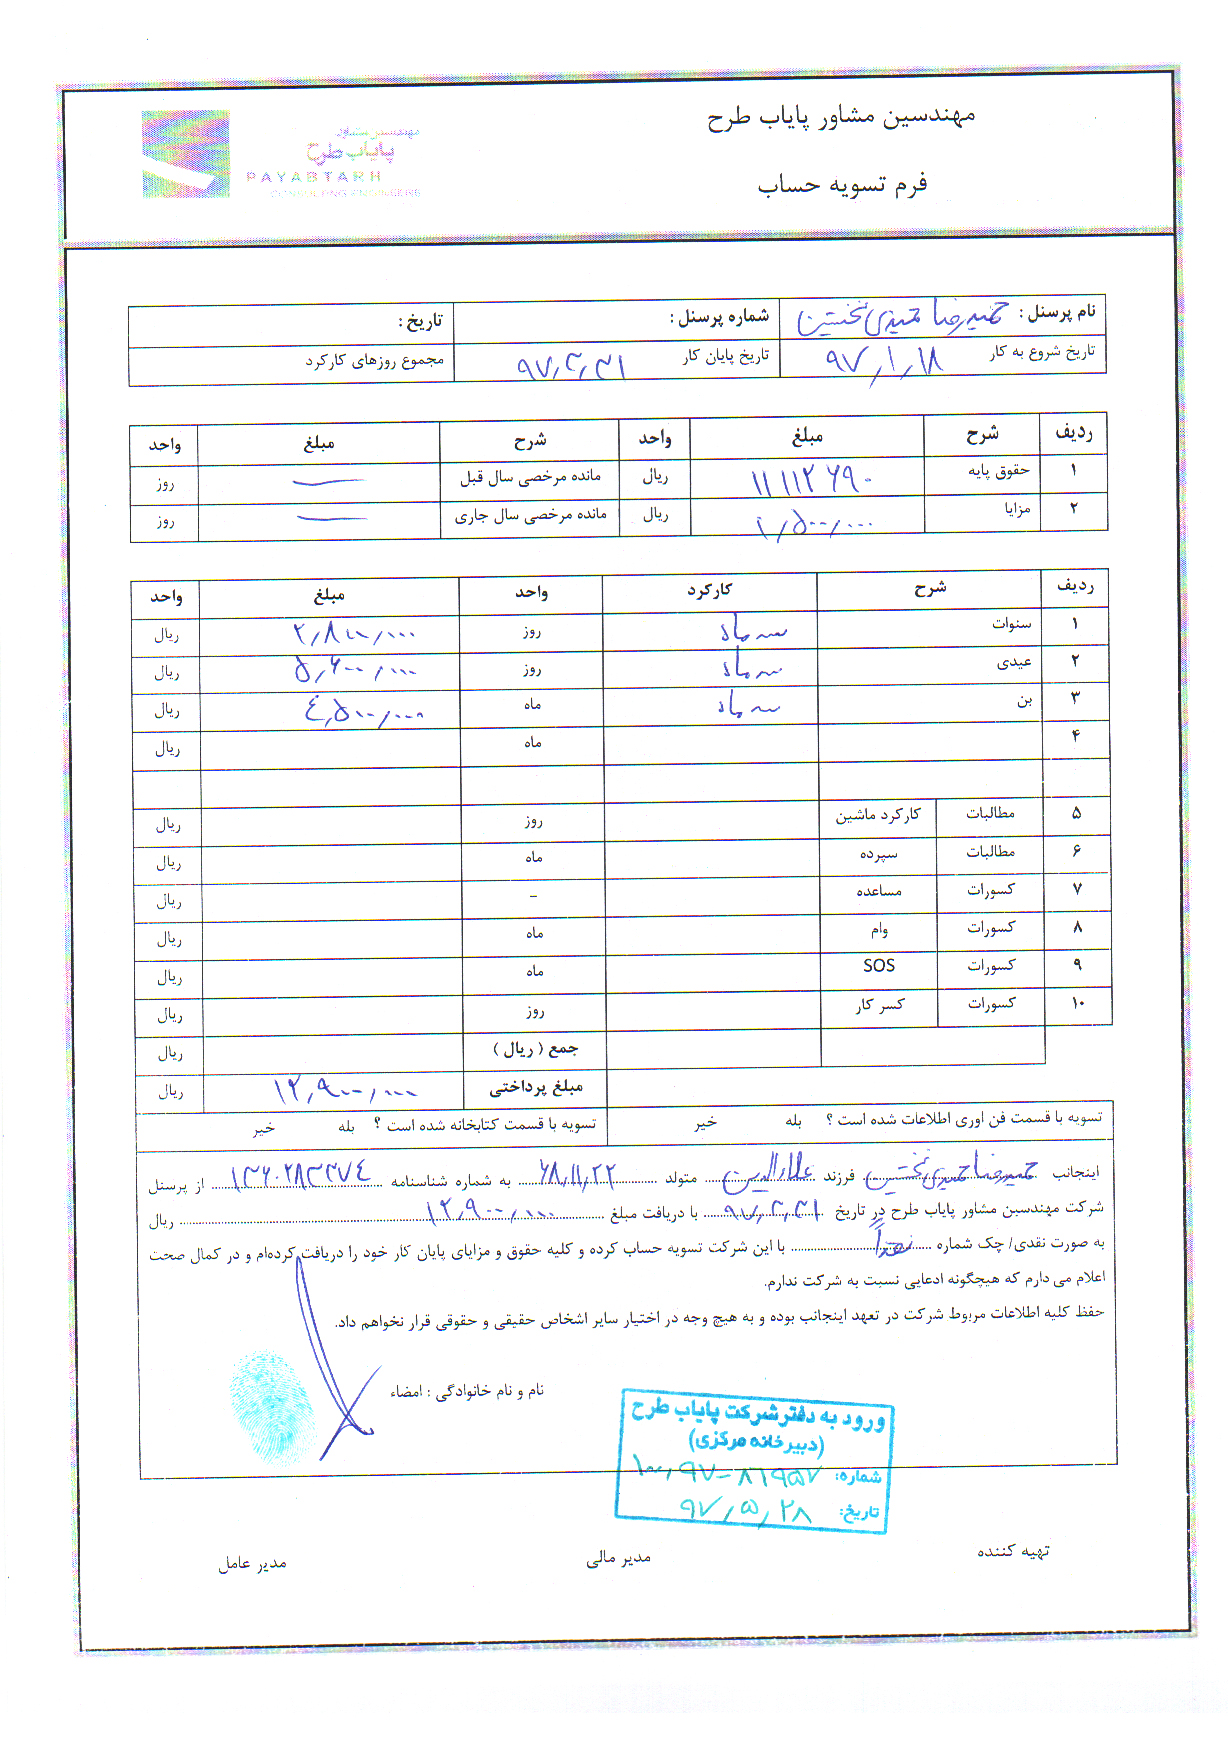 مهندسین مشاور پایاب طرح
مهندسین مشاور
پایاب طرح
PAYABTARH
CONSULING ENGINEERS
فرم تسویه حساب
نام پرسنل : حمیدرضا حمیدی نخستین شماره پرسنل : تاریخ :
تاریخ شروع به کار ۹۷/۱/۱۸ تاریخ پایان کار ۹۷/۳/۳۱ مجموع روزهای کارکرد
ردیف شرح مبلغ واحد شرح مبلغ واحد
۱ حقوق پایه ۱۱۱۱۲۶۹۰ ریال مانده مرخصی سال قبل — روز
۲ مزایا ۱/۵۰۰/۰۰۰ ریال مانده مرخصی سال جاری — روز
ردیف شرح کارکرد واحد مبلغ واحد
۱ سنوات سه ماه روز ۲/۸۰۰/۰۰۰ ریال
۲ عیدی سه ماه روز ۵/۶۰۰/۰۰۰ ریال
۳ بن سه ماه ماه ۴/۵۰۰/۰۰۰ ریال
۴ ماه ریال
۵ مطالبات کارکرد ماشین روز ریال
۶ مطالبات سپرده ماه ریال
۷ کسورات مساعده - ریال
۸ کسورات وام ماه ریال
۹ کسورات SOS ماه ریال
۱۰ کسورات کسر کار روز ریال
جمع ( ریال ) ریال
مبلغ پرداختی ۱۲/۹۰۰/۰۰۰ ریال
تسویه با قسمت فن اوری اطلاعات شده است ؟ بله خیر تسویه با قسمت کتابخانه شده است ؟ بله خیر
اینجانب حمیدرضا حمیدی نخستین فرزند علاءالدین متولد ۶۸/۱۱/۲۲ به شماره شناسنامه ۱۳۶۰۲۸۳۳۷۴ از پرسنل
شرکت مهندسین مشاور پایاب طرح در تاریخ ۹۷/۳/۳۱ با دریافت مبلغ ۱۲/۹۰۰/۰۰۰ ریال
به صورت نقدی/ چک شماره نقداً با این شرکت تسویه حساب کرده و کلیه حقوق و مزایای پایان کار خود را دریافت کرده‌ام و در کمال صحت
اعلام می دارم که هیچگونه ادعایی نسبت به شرکت ندارم.
حفظ کلیه اطلاعات مربوط شرکت در تعهد اینجانب بوده و به هیچ وجه در اختیار سایر اشخاص حقیقی و حقوقی قرار نخواهم داد.
نام و نام خانوادگی : امضاء
ورود به دفتر شرکت پایاب طرح
(دبیرخانه مرکزی)
شماره: ۱۰۰/۹۷-۸۶۹۵۷
تاریخ: ۹۷/۵/۲۸
تهیه کننده مدیر مالی مدیر عامل